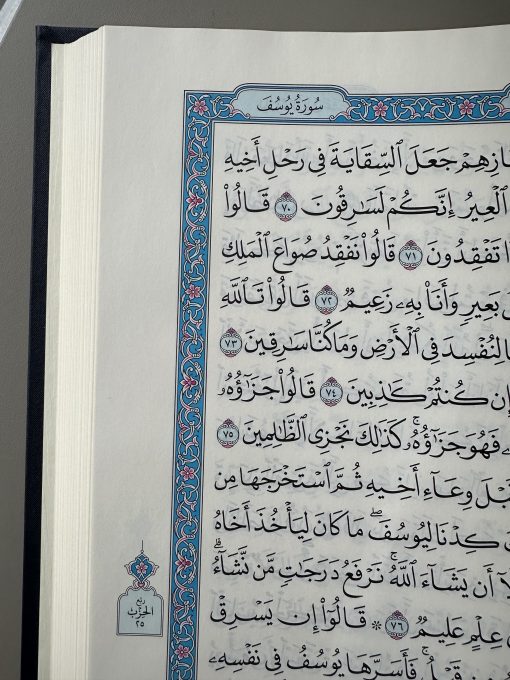 سُورَةُ يُوسُفَ
جَعَلَ ٱلسِّقَايَةَ فِى رَحْلِ أَخِيهِ
ٱلْعِيرُ إِنَّكُمْ لَسَـٰرِقُونَ ٧٠ قَالُوا۟
تَفْقِدُونَ ٧١ قَالُوا۟ نَفْقِدُ صُوَاعَ ٱلْمَلِكِ
بَعِيرٍ وَأَنَا۠ بِهِۦ زَعِيمٌ ٧٢ قَالُوا۟ تَٱللَّهِ
لِنُفْسِدَ فِى ٱلْأَرْضِ وَمَا كُنَّا سَـٰرِقِينَ ٧٣
إِن كُنتُمْ كَـٰذِبِينَ ٧٤ قَالُوا۟ جَزَٰٓؤُهُۥ
فَهُوَ جَزَٰٓؤُهُۥ ۚ كَذَٰلِكَ نَجْزِى ٱلظَّـٰلِمِينَ ٧٥
وِعَآءِ أَخِيهِ ثُمَّ ٱسْتَخْرَجَهَا مِن
كِدْنَا لِيُوسُفَ ۖ مَا كَانَ لِيَأْخُذَ أَخَاهُ
أَن يَشَآءَ ٱللَّهُ ۚ نَرْفَعُ دَرَجَـٰتٍ مَّن نَّشَآءُ ۗ
عِلْمٍ عَلِيمٌ ٧٦ ۞ قَالُوٓا۟ إِن يَسْرِقْ
فَأَسَرَّهَا يُوسُفُ فِى نَفْسِهِۦ
ربع
الحزب
٢٥